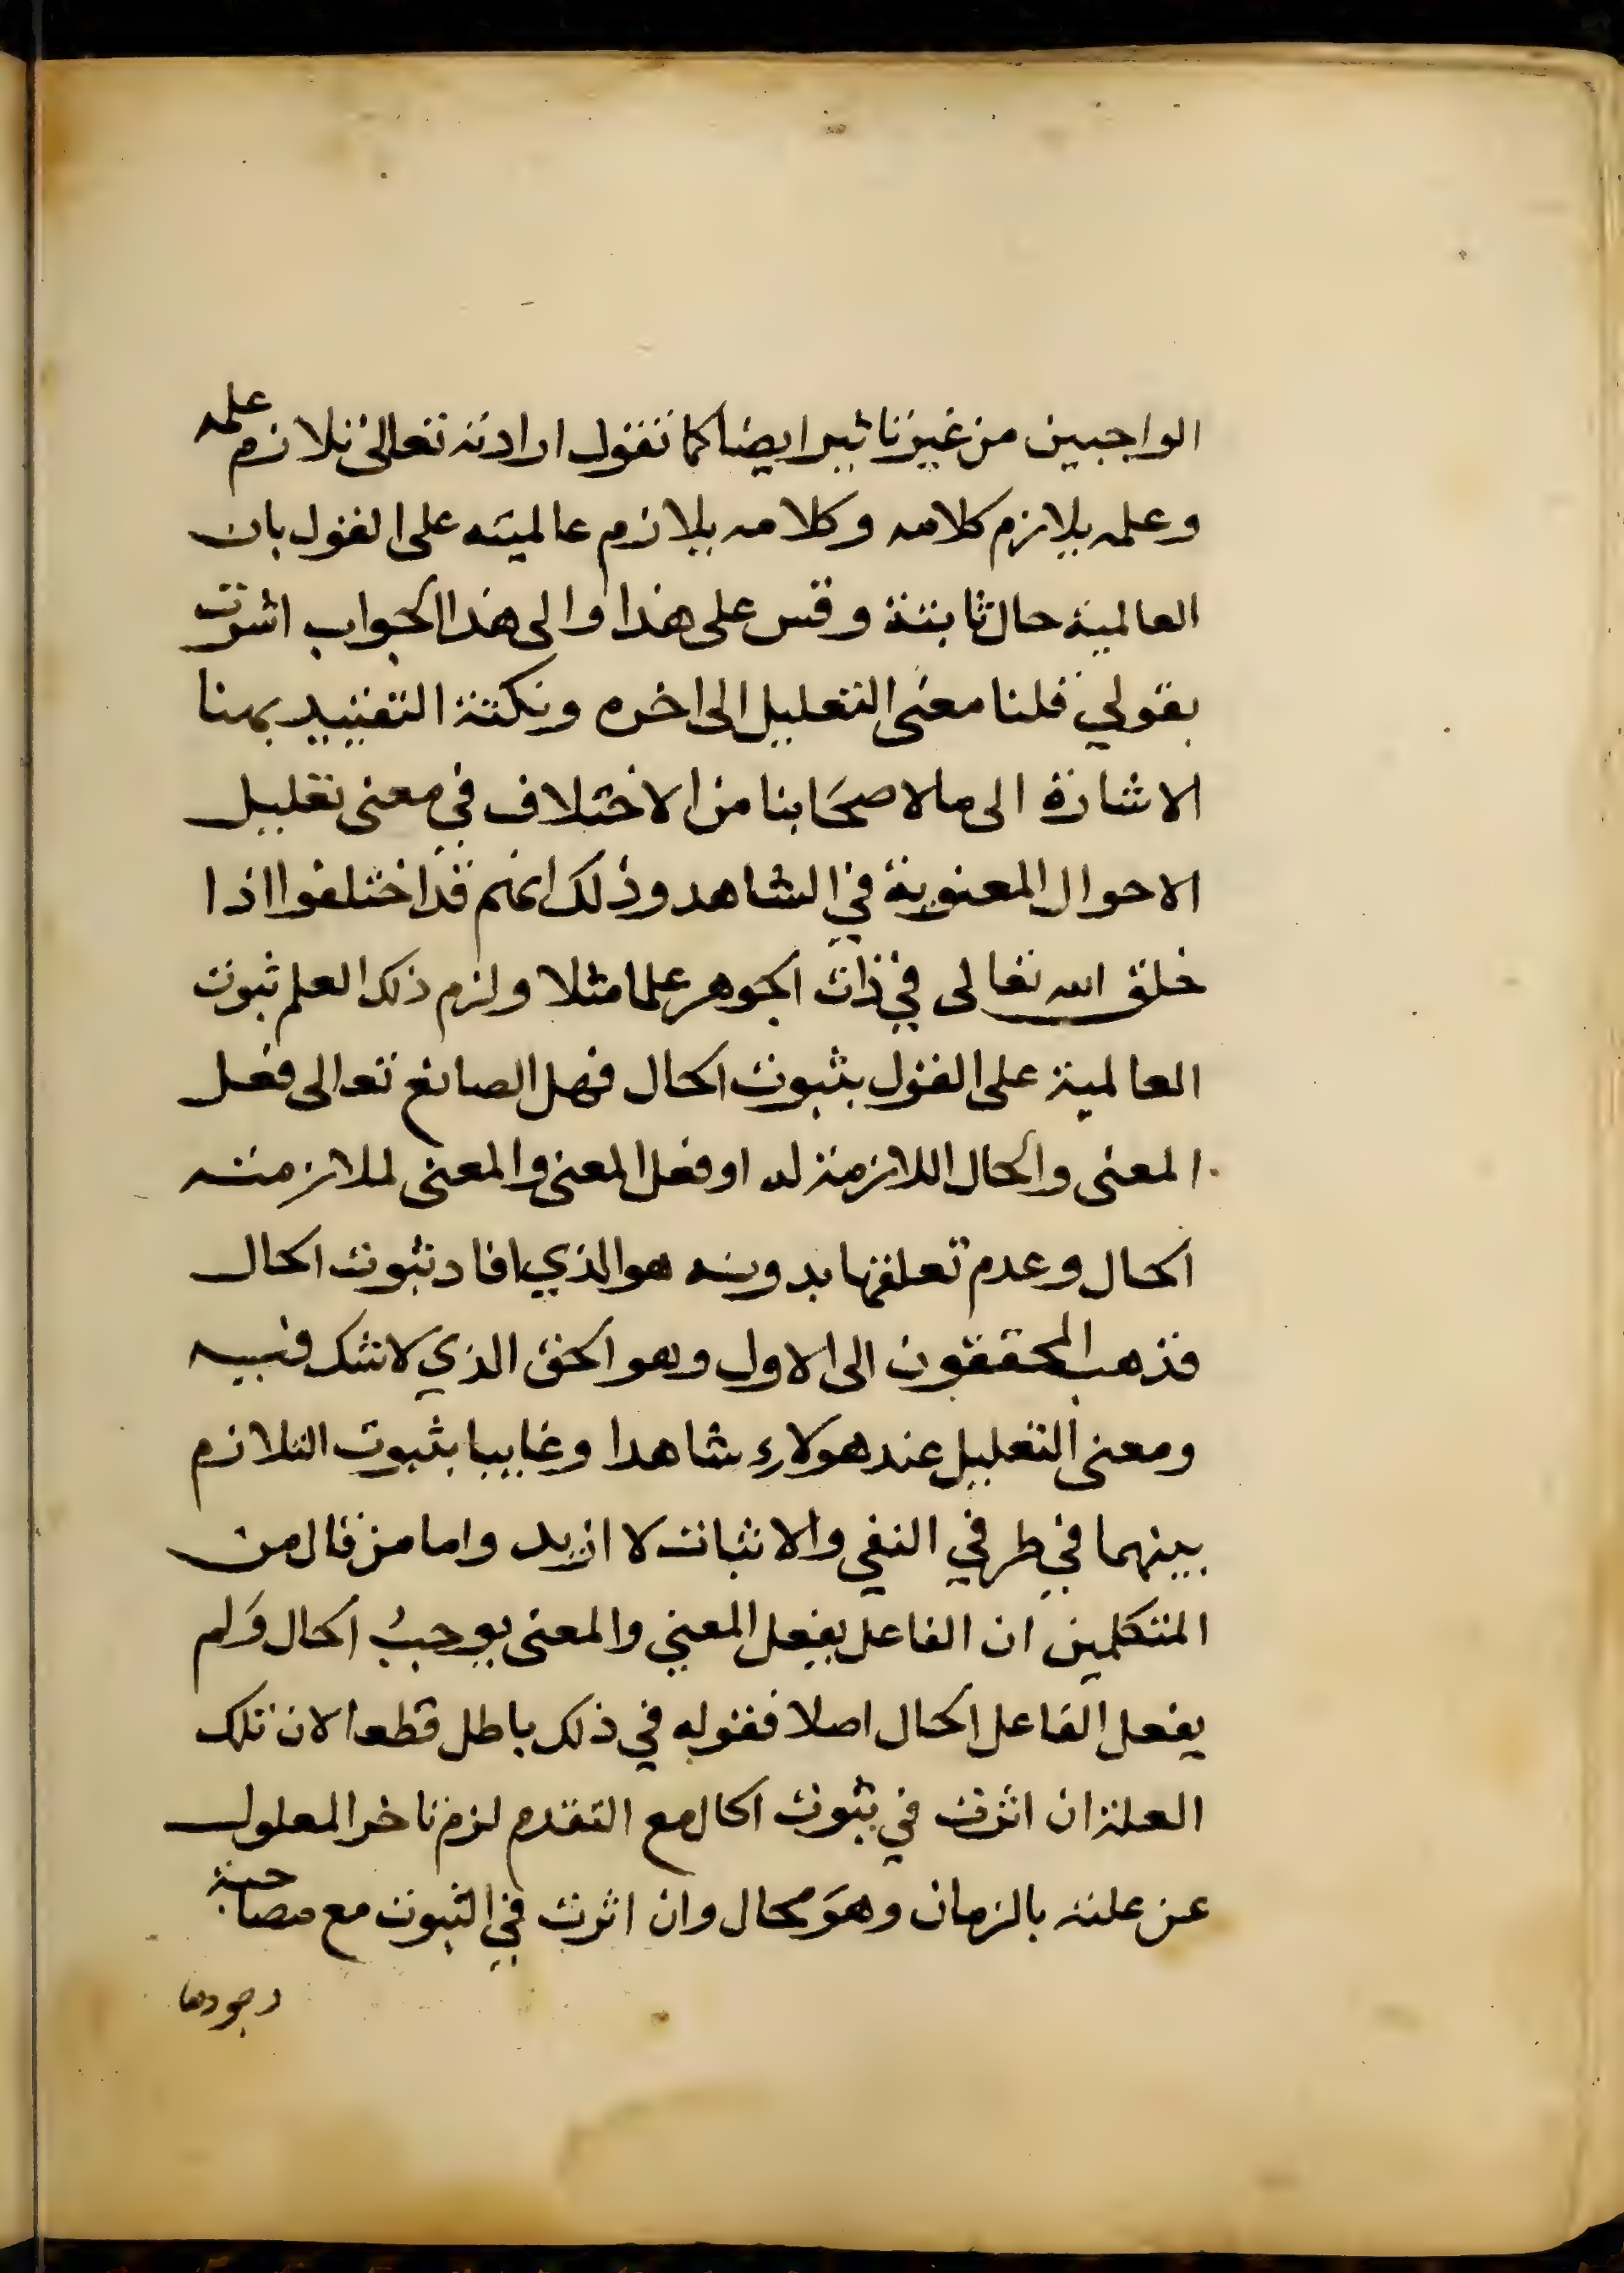 الواجبين من غير تاثير ايضا كما تقول ارادته تعالى تلازم علمه
وعلمه يلازم كلامه وكلامه يلازم عالميته على القول بان
العالمية حال ثابتة وقس على هذا والى هذا الجواب اشرت
بقولي قلنا معنى التعليل الى اخره ونكتة التقييد بهنا
الاشارة الى ما لاصحابنا من الاختلاف في معنى تعليل
الاحوال المعنوية في الشاهد وذلك انهم قد اختلفوا اذا
خلق الله تعالى في ذات الجوهر علما مثلا ولزم ذلك العلم ثبوت
العالمية على القول بثبوت الحال فهل الصانع تعالى فعل
المعنى والحال اللازمة له او فعل المعنى والمعنى لملازمته
الحال وعدم تعلقها بدونه هو الذي افاد ثبوت الحال
فذهب المحققون الى الاول وهو الحق الذي لا شك فيه
ومعنى التعليل عند هولاء شاهدا وغايبا بثبوت التلازم
بينهما في طرفي النفي والاثبات لا ازيد واما من قال من
المتكلمين ان الفاعل يفعل المعنى والمعنى يوجب الحال ولم
يفعل الفاعل الحال اصلا فقوله في ذلك باطل قطعا لان تلك
العلة ان اثرت في ثبوت الحال مع التقدم لزم تاخر المعلول
عن علته بالزمان وهو محال وان اثرت في الثبوت مع مصاحبة
وجودها